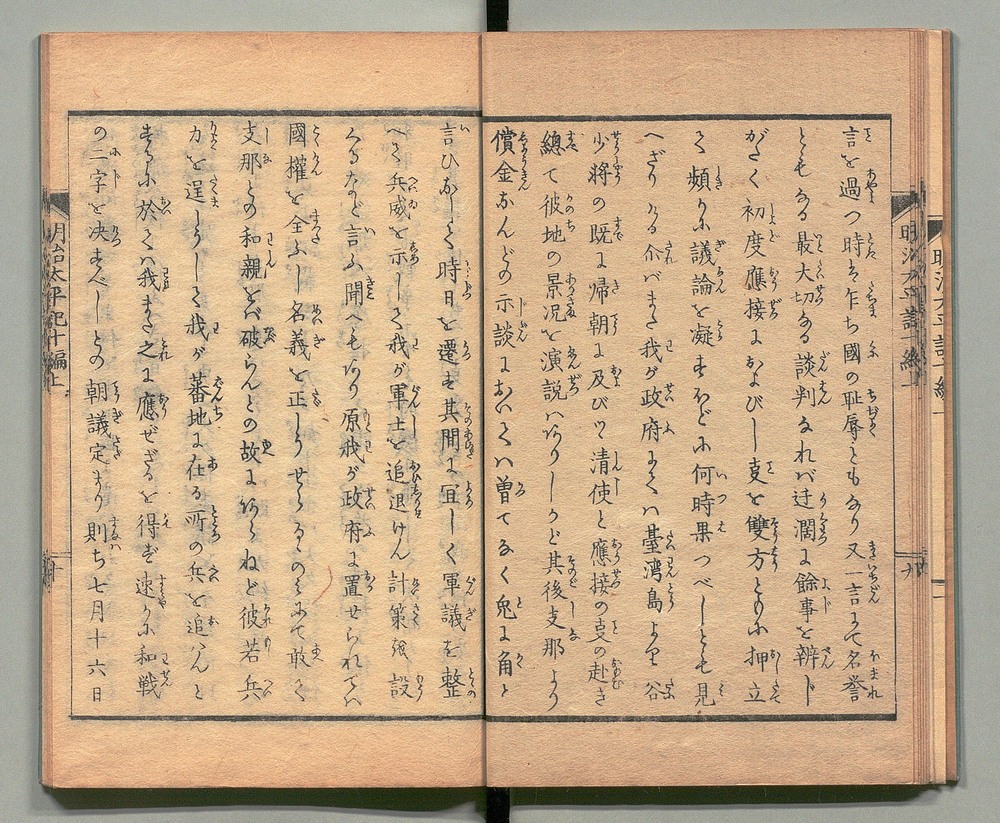 言を過つ時は乍ち國の耻辱ともなり又一言にて名誉
ともなる最大切なる談判なれば迂濶に餘事を辨じ
がたく初度應接におよびし㕝を雙方ともに押立
て頻りに議論を凝すほどに何時果つべしとも見
へざりける介ばまた我が政府にては臺湾島より谷
少将の既に帰朝に及びて清使と應接の㕝の赴き
總て彼地の景况を演説はありしかど其後支那より
償金なんどの示談においては曽てなく兎に角と
言ひがゝして時日を遷す其間に宜しく軍議を整
へて兵威を示して我が軍士を追退けん計策を設
くるなど言ふ聞へもあり原我が政府に置せられては
國權を全ふし名義を正しうせらるゝのみにて敢て
支那との和親をば破らんとの故にあらねど彼若兵
力を逞しうして我が蕃地に在る所の兵を追はんと
するに於ては我また之に應ぜざるを得ず速かに和戦
の二字を决すべしとの朝議定まり則ち七月十六日
明治太平記十編上
十
明治太平記十編上
九